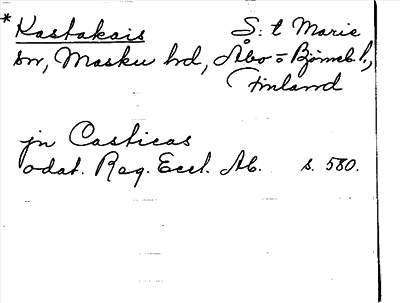 * Kastakais S:t Marie
sn, Masku hd, Åbo o Björneb l.,
Finland
jn Casticas
odat. Reg. Eccl. Ab. s. 580.